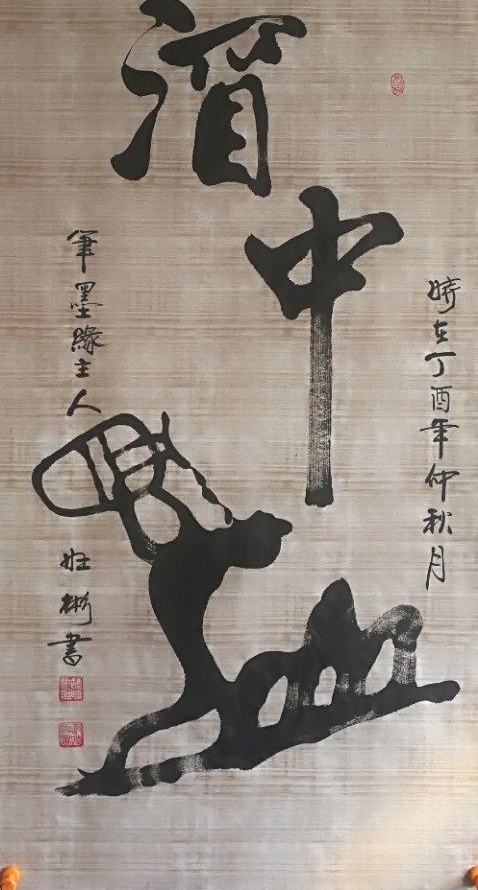 酒中仙
時在丁酉年仲秋月
筆墨緣主人
彬書